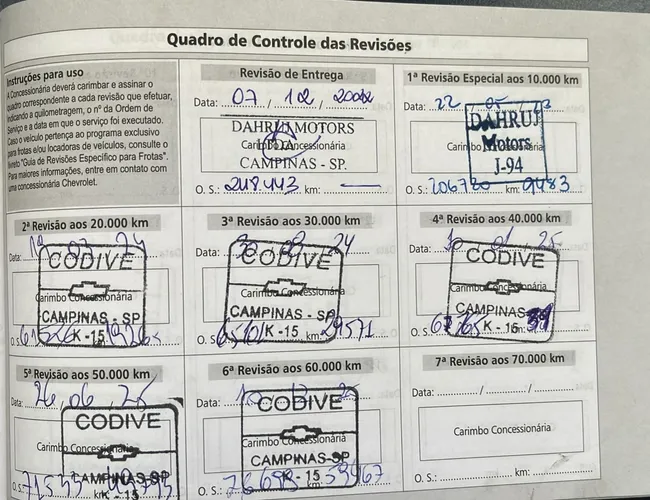 Quadro de Controle das Revisões
Instruções para uso
A Concessionária deverá carimbar e assinar o
quadro correspondente a cada revisão que efetuar,
indicando a quilometragem, o nº da Ordem de
Serviço e a data em que o serviço foi executado.
Caso o veículo pertença ao programa exclusivo
para frotas e/ou locadoras de veículos, consulte o
livreto "Guia de Revisões Específico para Frotas".
Para maiores informações, entre em contato com
uma concessionária Chevrolet.
Revisão de Entrega
Data: 07 / 12 /
DAHRUJ MOTORS
Carimbo Concessionária
CAMPINAS - SP.
O. S.: 248.443 km:
1ª Revisão Especial aos 10.000 km
Data: 22 / 05 /
DAHRUJ
Motors
Carimbo Concessionária
J-94
O. S.: 206780 km: 9483
2ª Revisão aos 20.000 km
Data: 24
CODIVE
Carimbo Concessionária
CAMPINAS - SP
K - 15
O. S.
3ª Revisão aos 30.000 km
Data: 24
CODIVE
Carimbo Concessionária
CAMPINAS - SP
K - 15
O. S. km: 29571
4ª Revisão aos 40.000 km
Data: 25
CODIVE
Carimbo Concessionária
CAMPINAS
K - 15
O. S.
5ª Revisão aos 50.000 km
Data: 26 / 06 / 25
CODIVE
Carimbo Concessionária
CAMPINAS-SP
K - 15
O. S.: km:
6ª Revisão aos 60.000 km
Data: 25
CODIVE
Carimbo Concessionária
CAMPINAS-SP
K - 15
O. S.: km: 59967
7ª Revisão aos 70.000 km
Data: / /
Carimbo Concessionária
O. S.: km: